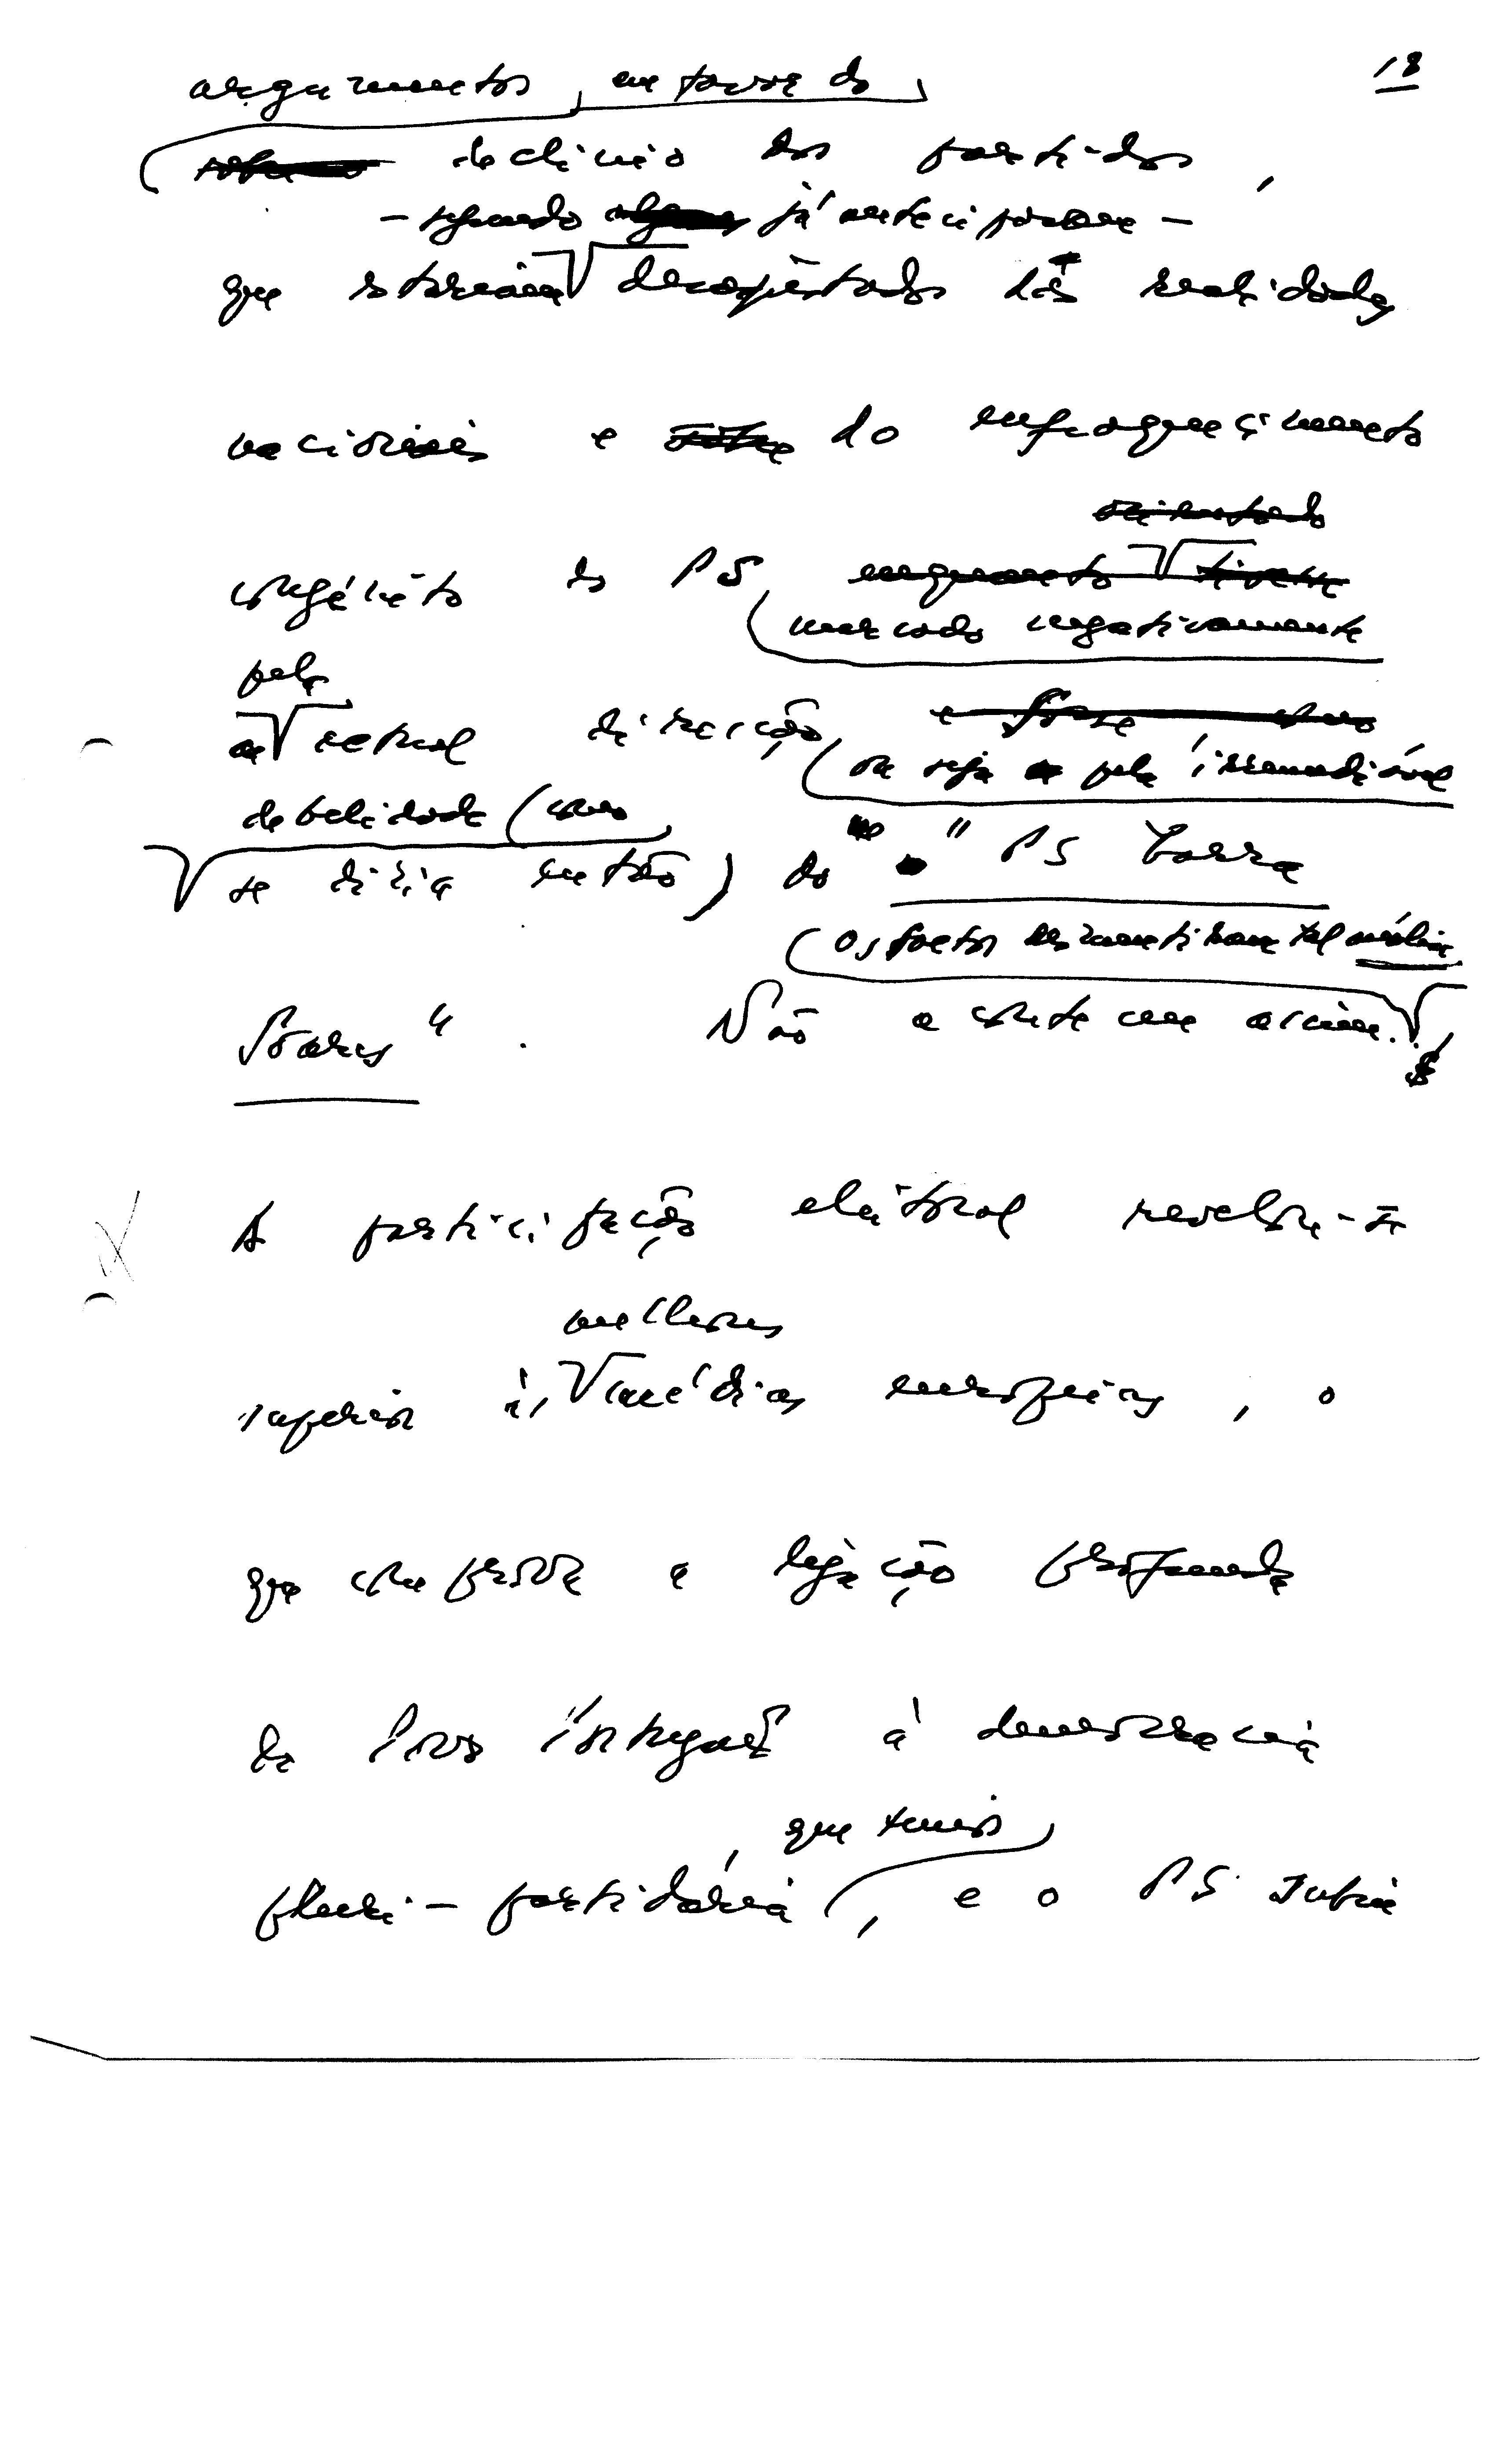 18
argumentos, em torno do
declínio dos partidos,
– segundo já antecipavam –
que estariam desajustados das realidades
nacionais e do enfraquecimento
congénito do PS
marcado negativamente
pela
actual direcção
ou seja pela irremediável
debilidade (como
se diria então) do " PS sem
(Os factos desmentiram tal análise
Soares ". Não aconteceu assim.
A participação eleitoral revelou-se
melhores
superior às médias europeias, o
que comprova a ligação profunda
do Povo Português à democracia
que temos
pluri-partidária, e o PS subiu